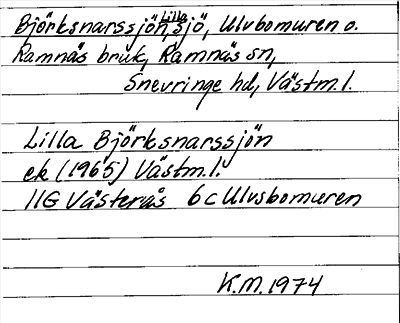 Björksnarssjön, Lilla, sjö, Ulvbomuren o.
Ramnäs bruk, Ramnäs sn,
Snevringe hd, Västm. l.
Lilla Björksnarssjön
ek (1965) Västm. l.
11G Västerås 6c Ulvsbomuren
K.M. 1974